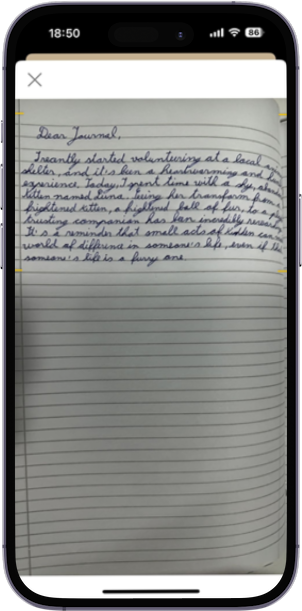 18:50
86
Dear Journal,
I recently started volunteering at a local
shelter, and it's been a heartwarming and
experience. Today, I spent time with a shy,
kitten named Luna. Seeing her transform from a
frightened kitten, a frightened ball of fur, to a
trusting companion has been incredibly
It's a reminder that small acts of
world of difference in someone's life, even if
someone's life is a furry one.